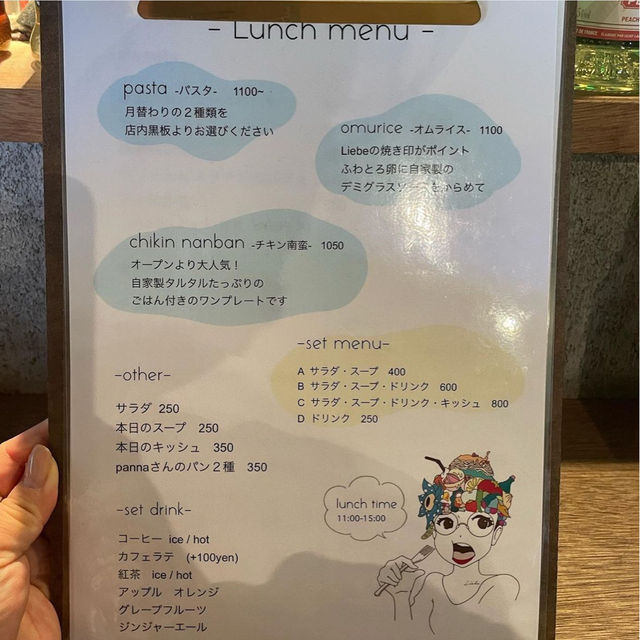 - Lunch menu -
pasta -パスタ- 1100~
月替わりの２種類を
店内黒板よりお選びください
omurice -オムライス- 1100
Liebeの焼き印がポイント
ふわとろ卵に自家製の
デミグラスソースをからめて
chikin nanban -チキン南蛮- 1050
オープンより大人気！
自家製タルタルたっぷりの
ごはん付きのワンプレートです
-set menu-
A サラダ・スープ 400
B サラダ・スープ・ドリンク 600
C サラダ・スープ・ドリンク・キッシュ 800
D ドリンク 250
-other-
サラダ 250
本日のスープ 250
本日のキッシュ 350
pannaさんのパン２種 350
-set drink-
コーヒー ice / hot
カフェラテ (+100yen)
紅茶 ice / hot
アップル オレンジ
グレープフルーツ
ジンジャーエール
lunch time
11:00-15:00
PEACH